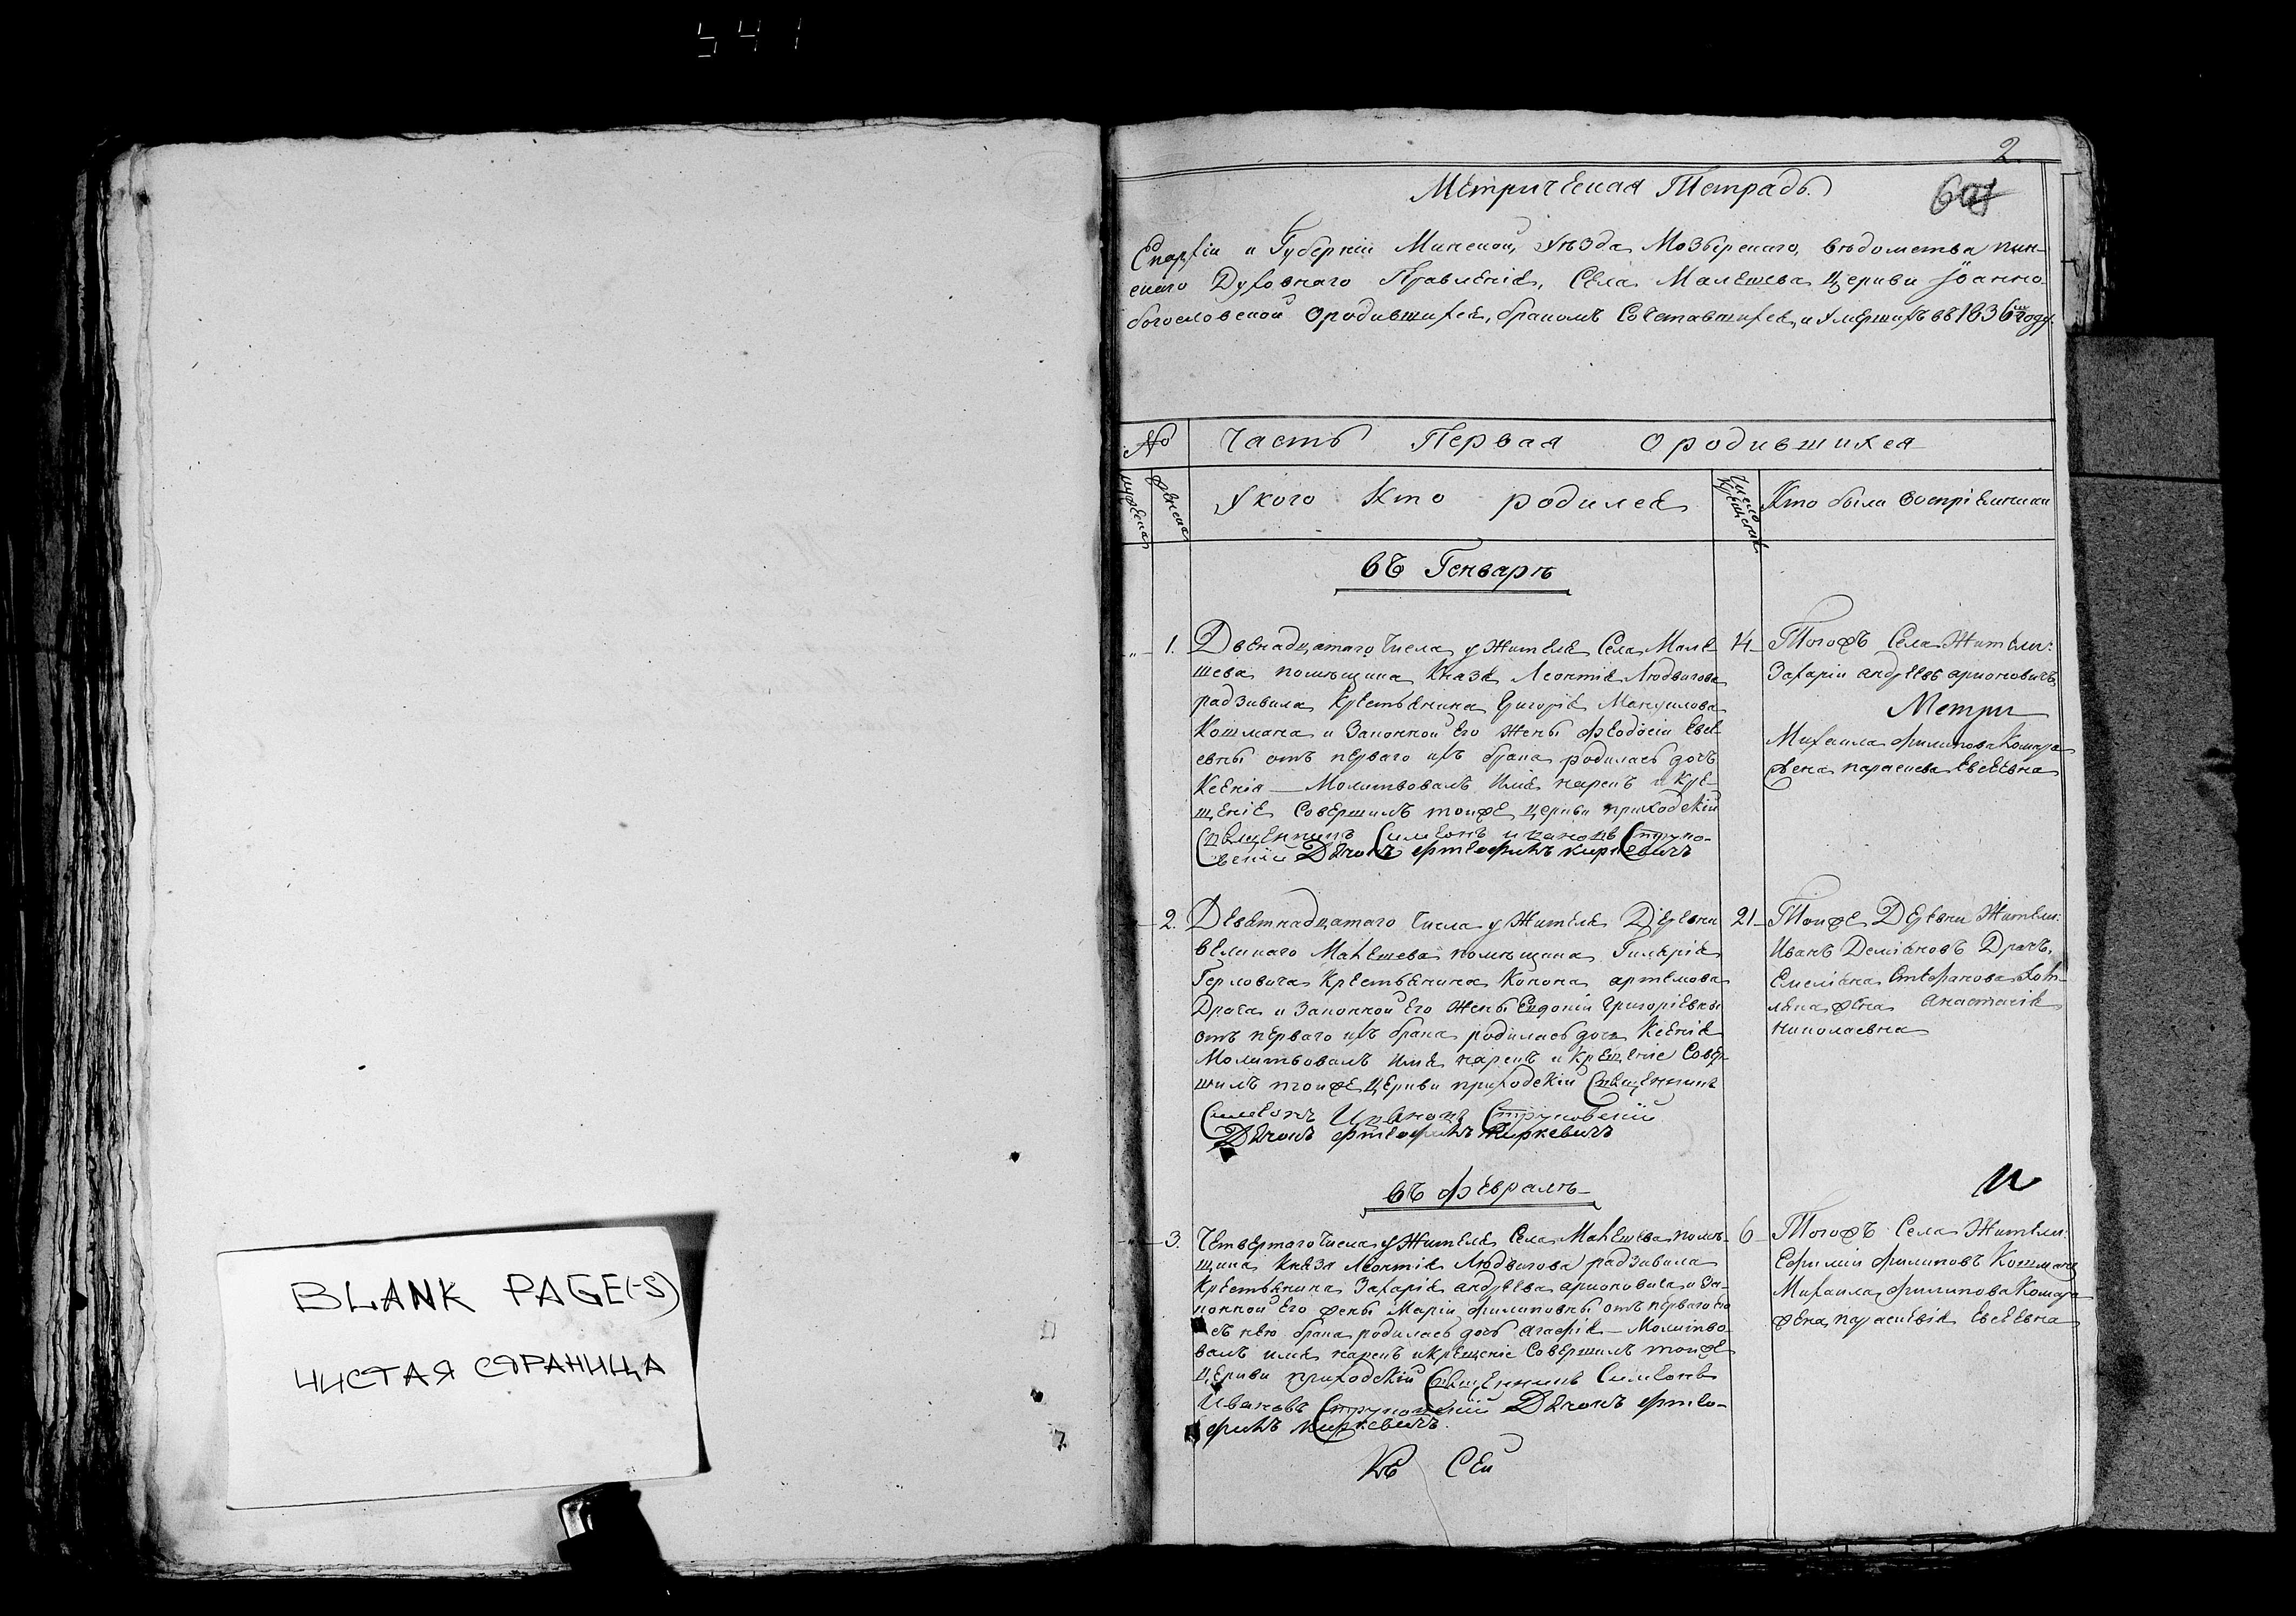 541
BLANK PAGE(-S)
ЧИСТАЯ СТРАНИЦА
2.
Метрическая Тетрадь.
Епархіи и Губерніи Минской, Уѣзда Мозырскаго, вѣдомства пин-
скаго Духовнаго Правленія, Села Малешева Церкви Іоанно
богословской Ородившихся, бракомъ Сочетавшихся, и Умершихъ въ 1836мъ году.
№ Часть Первая Ородившихся
мужеска
женска
Укого Кто родился
число крещенія
Кто были воспріемники
въ Генварѣ
1. Двенадцатаго Числа у Жителя Села Мале
шева помѣщика Князя Леонтія Людвигова
радзивила Крестьянина Григорія Мануилова
Кошмана и Законной Его Жены Феодосіи Евсе
евны отъ перваго ихъ брака родилась дочь
Ксенія — Молитвовалъ Имя нарекъ и Кре-
щеніе Совершилъ тоиже церкви приходскій
Священникъ Симеонъ Ивановъ Струко-
вскій Дьячокъ Киркевичъ
14 Тогожъ Села Жители:
Захарій андреевъ
Метри
Михаила филипова Комара
жена параскева Евсеевна
2. Девятнадцатаго Числа у Жителя Деревни
Великаго Малешева помѣщика Гиларія
Герловича Крестьянина Конона артемова
Драча и Законной Его Жены Евдокіи Григоріевны
отъ перваго ихъ брака родилась дочь Ксенія
Молитвовалъ имя нарекъ и Крещеніе Совер-
шилъ тоиже Церкви приходскій Священникъ
Симеонъ Ивановъ Струковскій
Дьячокъ Киркевичъ
21 Тоиже Деревни Жители:
Иванъ Деміановъ Драчъ,
Емеліана Стефанова
жена анастасія
николаевна
въ Февралѣ
3. Четвертаго Числа у Жителя Села Малешева помѣ-
щика князя Леонтія Людвигова радзивила
Крестьянина Захарія андреева и за-
конной Его жены Маріи филиповны отъ перваго Его
съ нею брака родилась дочь агафія — Молитво-
валъ имя нарекъ и крещеніе Совершилъ тоиже
Церкви приходскій Священникъ Симеонъ
Ивановъ Струковскій Дьячокъ
Киркевичъ.
6 Тогожъ Села Жители:
Ефимій филиповъ Кошманъ
Михаила филипова Комара
жена параскевія Евсеевна
Къ Сей